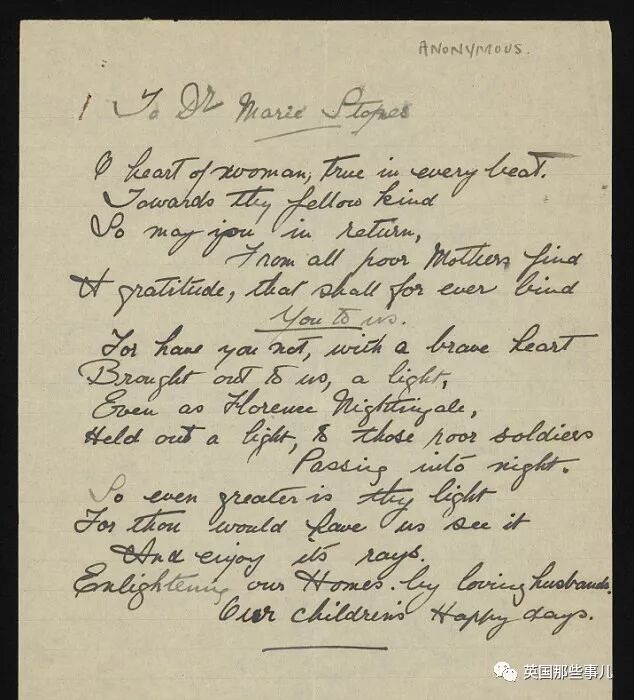 ANONYMOUS.
To Dr Marie Stopes
O heart of woman, true in every beat.
Towards thy fellow kind
So may you in return,
From all poor Mothers find
A gratitude, that shall for ever bind
You to us.
For have you not, with a brave heart
Brought out to us, a light,
Even as Florence Nightingale,
Held out a light, to those poor soldiers
Passing into night.
So even greater is thy light
For thou would have us see it
And enjoy its rays.
Enlightening our Homes. by loving husbands.
Our children's Happy days.
英国那些事儿